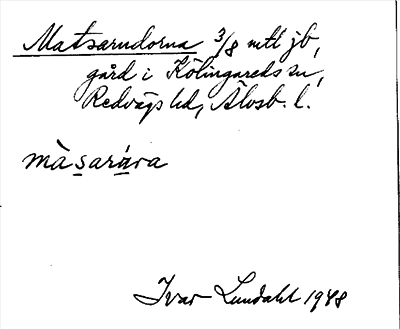 Matsarudorna 3/8 mtl jb,
gård i Kölingareds sn,
Redvägs hd, Älvsb. l.
màsarúra
Ivar Lundahl 1948